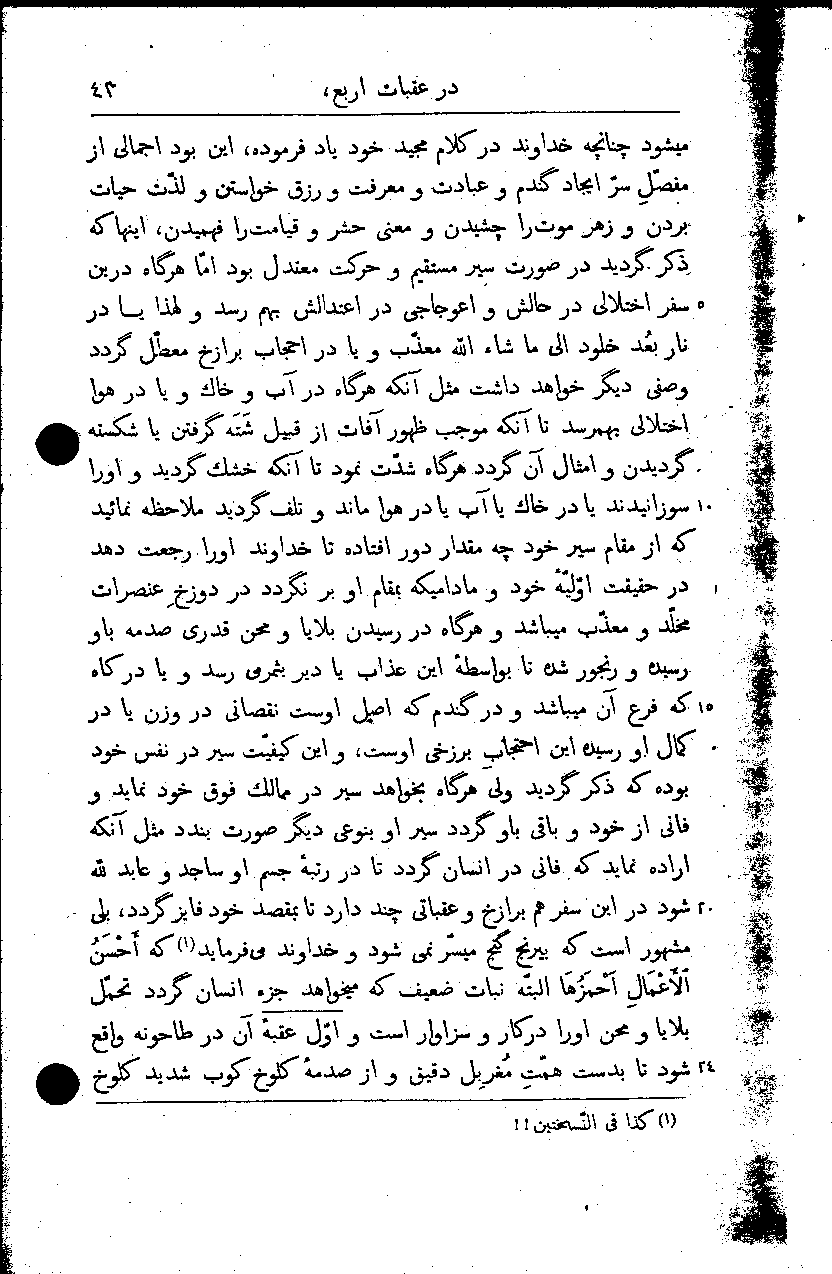 در عقبات اربع، ٤٣
میشود چنانچه خداوند در کلام مجید خود یاد فرموده، این بود اجمالی از
مفصّلِ سرّ ایجاد گندم و عبادت و معرفت و رزق خواستن و لذّت حیات
بردن و زهر موت‌را چشیدن و معنی حشر و قیامت‌را فهمیدن، اینها که
ذکر گردید در صورت سیر مستقیم و حرکت معتدل بود امّا هرگاه درین
٥ سفر اختلالی در حالش و اعوجاجی در اعتدالش بهم رسد و لهذا یا در
نار بُعد خلود الی ما شاء الله معذّب و یا در احجاب برازخ معطّل گردد
وصفی دیگر خواهد داشت مثل آنکه هرگاه در آب و خاك و یا در هوا
اختلالی بهمرسد تا آنکه موجب ظهور آفات از قبیل شَتَه گرفتن یا شکسته
گردیدن و امثال آن گردد هرگاه شدّت نمود تا آنکه خشك گردید و اورا
١٠ سوزانیدند یا در خاك یا آب یا در هوا ماند و تلف گردید ملاحظه نمائید
که از مقام سیر خود چه مقدار دور افتاده تا خداوند اورا رجعت دهد
در حقیقت اوّلیّهٔ خود و مادامیکه بمقام او بر نگردد در دوزخِ عنصرات
مخلّد و معذّب میباشد و هرگاه در رسیدن بلایا و محن قدری صدمه باو
رسیده و رنجور شده تا بواسطهٔ این عذاب یا دیر بثمری رسد و یا در کاه
١٥ که فرع آن میباشد و در گندم که اصل اوست نقصانی در وزن یا در
کمال او رسیده این احتجابِ برزخی اوست، و این کیفیّت سیر در نفس خود
بوده که ذکر گردید ولی هرگاه بخواهد سیر در ممالك فوق خود نماید و
فانی از خود و باقی باو گردد سیر او بنوعی دیگر صورت بندد مثل آنکه
اراده نماید که فانی در انسان گردد تا در رتبهٔ جسم او ساجد و عابد لله
٢٠ شود در این سفر هم برازخ و عقباتی چند دارد تا بمقصد خود فایز گردد، بلی
مشهور است که بیرنج گنج میسّر نمی شود و خداوند می‌فرماید(١) که أَحْسَنُ
ٱلْأَعْمَالِ أَحْمَزُهَا البتّه نبات ضعیف که میخواهد جزء انسان گردد تحمّل
بلایا و محن اورا درکار و سزاوار است و اوّل عقبهٔ آن در طاحونه واقع
٢٤ شود تا بدست همّتِ مُغربِل دقیق و از صدمهٔ کلوخ کوب شدید کلوخ
(١) کذا فی النّسختین!!